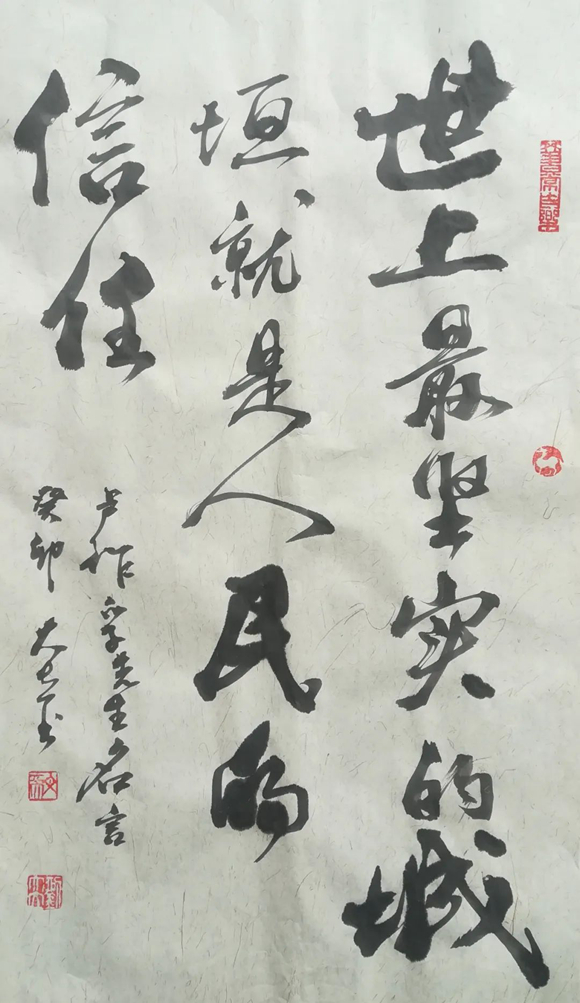 世上最坚实的城
垣就是人民的
信任
卢作孚先生名言
癸卯 大